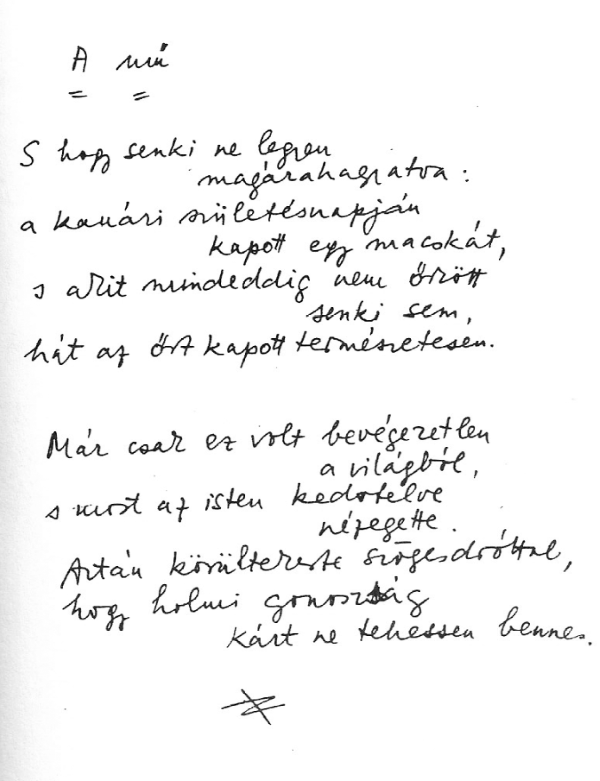 A mű
S hogy senki ne legyen
magárahagyatva:
a kanári születésnapján
kapott egy macskát,
s akit mindeddig nem őrzött
senki sem,
hát az őrt kapott természetesen.
Már csak ez volt bevégezetlen
a világból,
s most az isten kedvtelve
nézegette.
Aztán körültekerte szögesdróttal,
hogy holmi gonoszság
kárt ne tehessen benne.